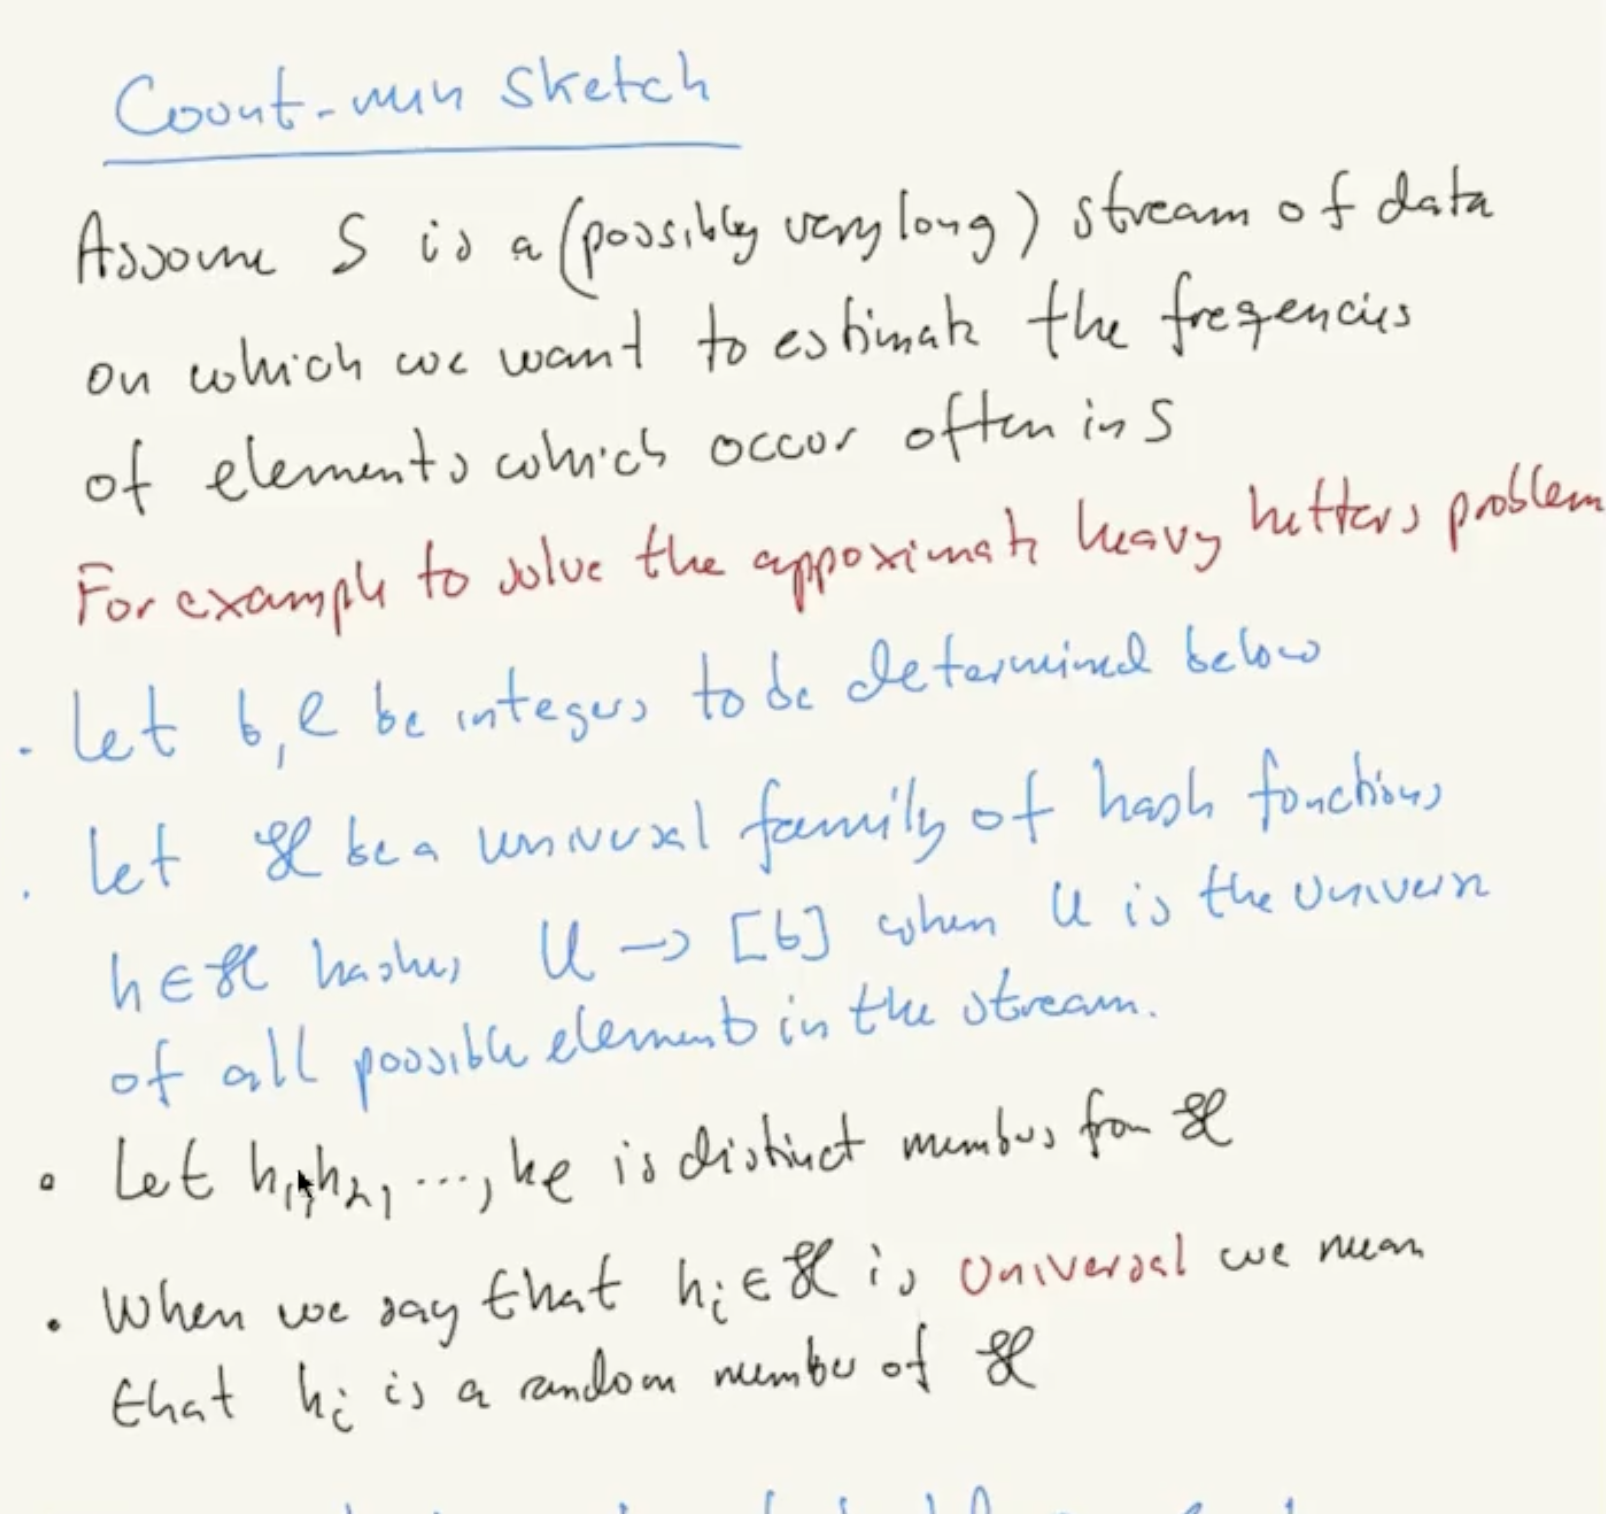 Count-min Sketch
Assume S is a (possibly very long) stream of data
on which we want to estimate the freqencies
of elements which occur often in S
For example to solve the appoximate heavy hitters problem
. Let b, ℓ be integers to be determined below
. Let ℋ be a universal family of hash functions
h ∈ ℋ hashes U → [b] when U is the univers
of all possible elements in the stream.
• Let h₁, h₂, ..., hℓ is distinct members from ℋ
• When we say that hᵢ ∈ ℋ is universal we mean
that hᵢ is a random member of ℋ